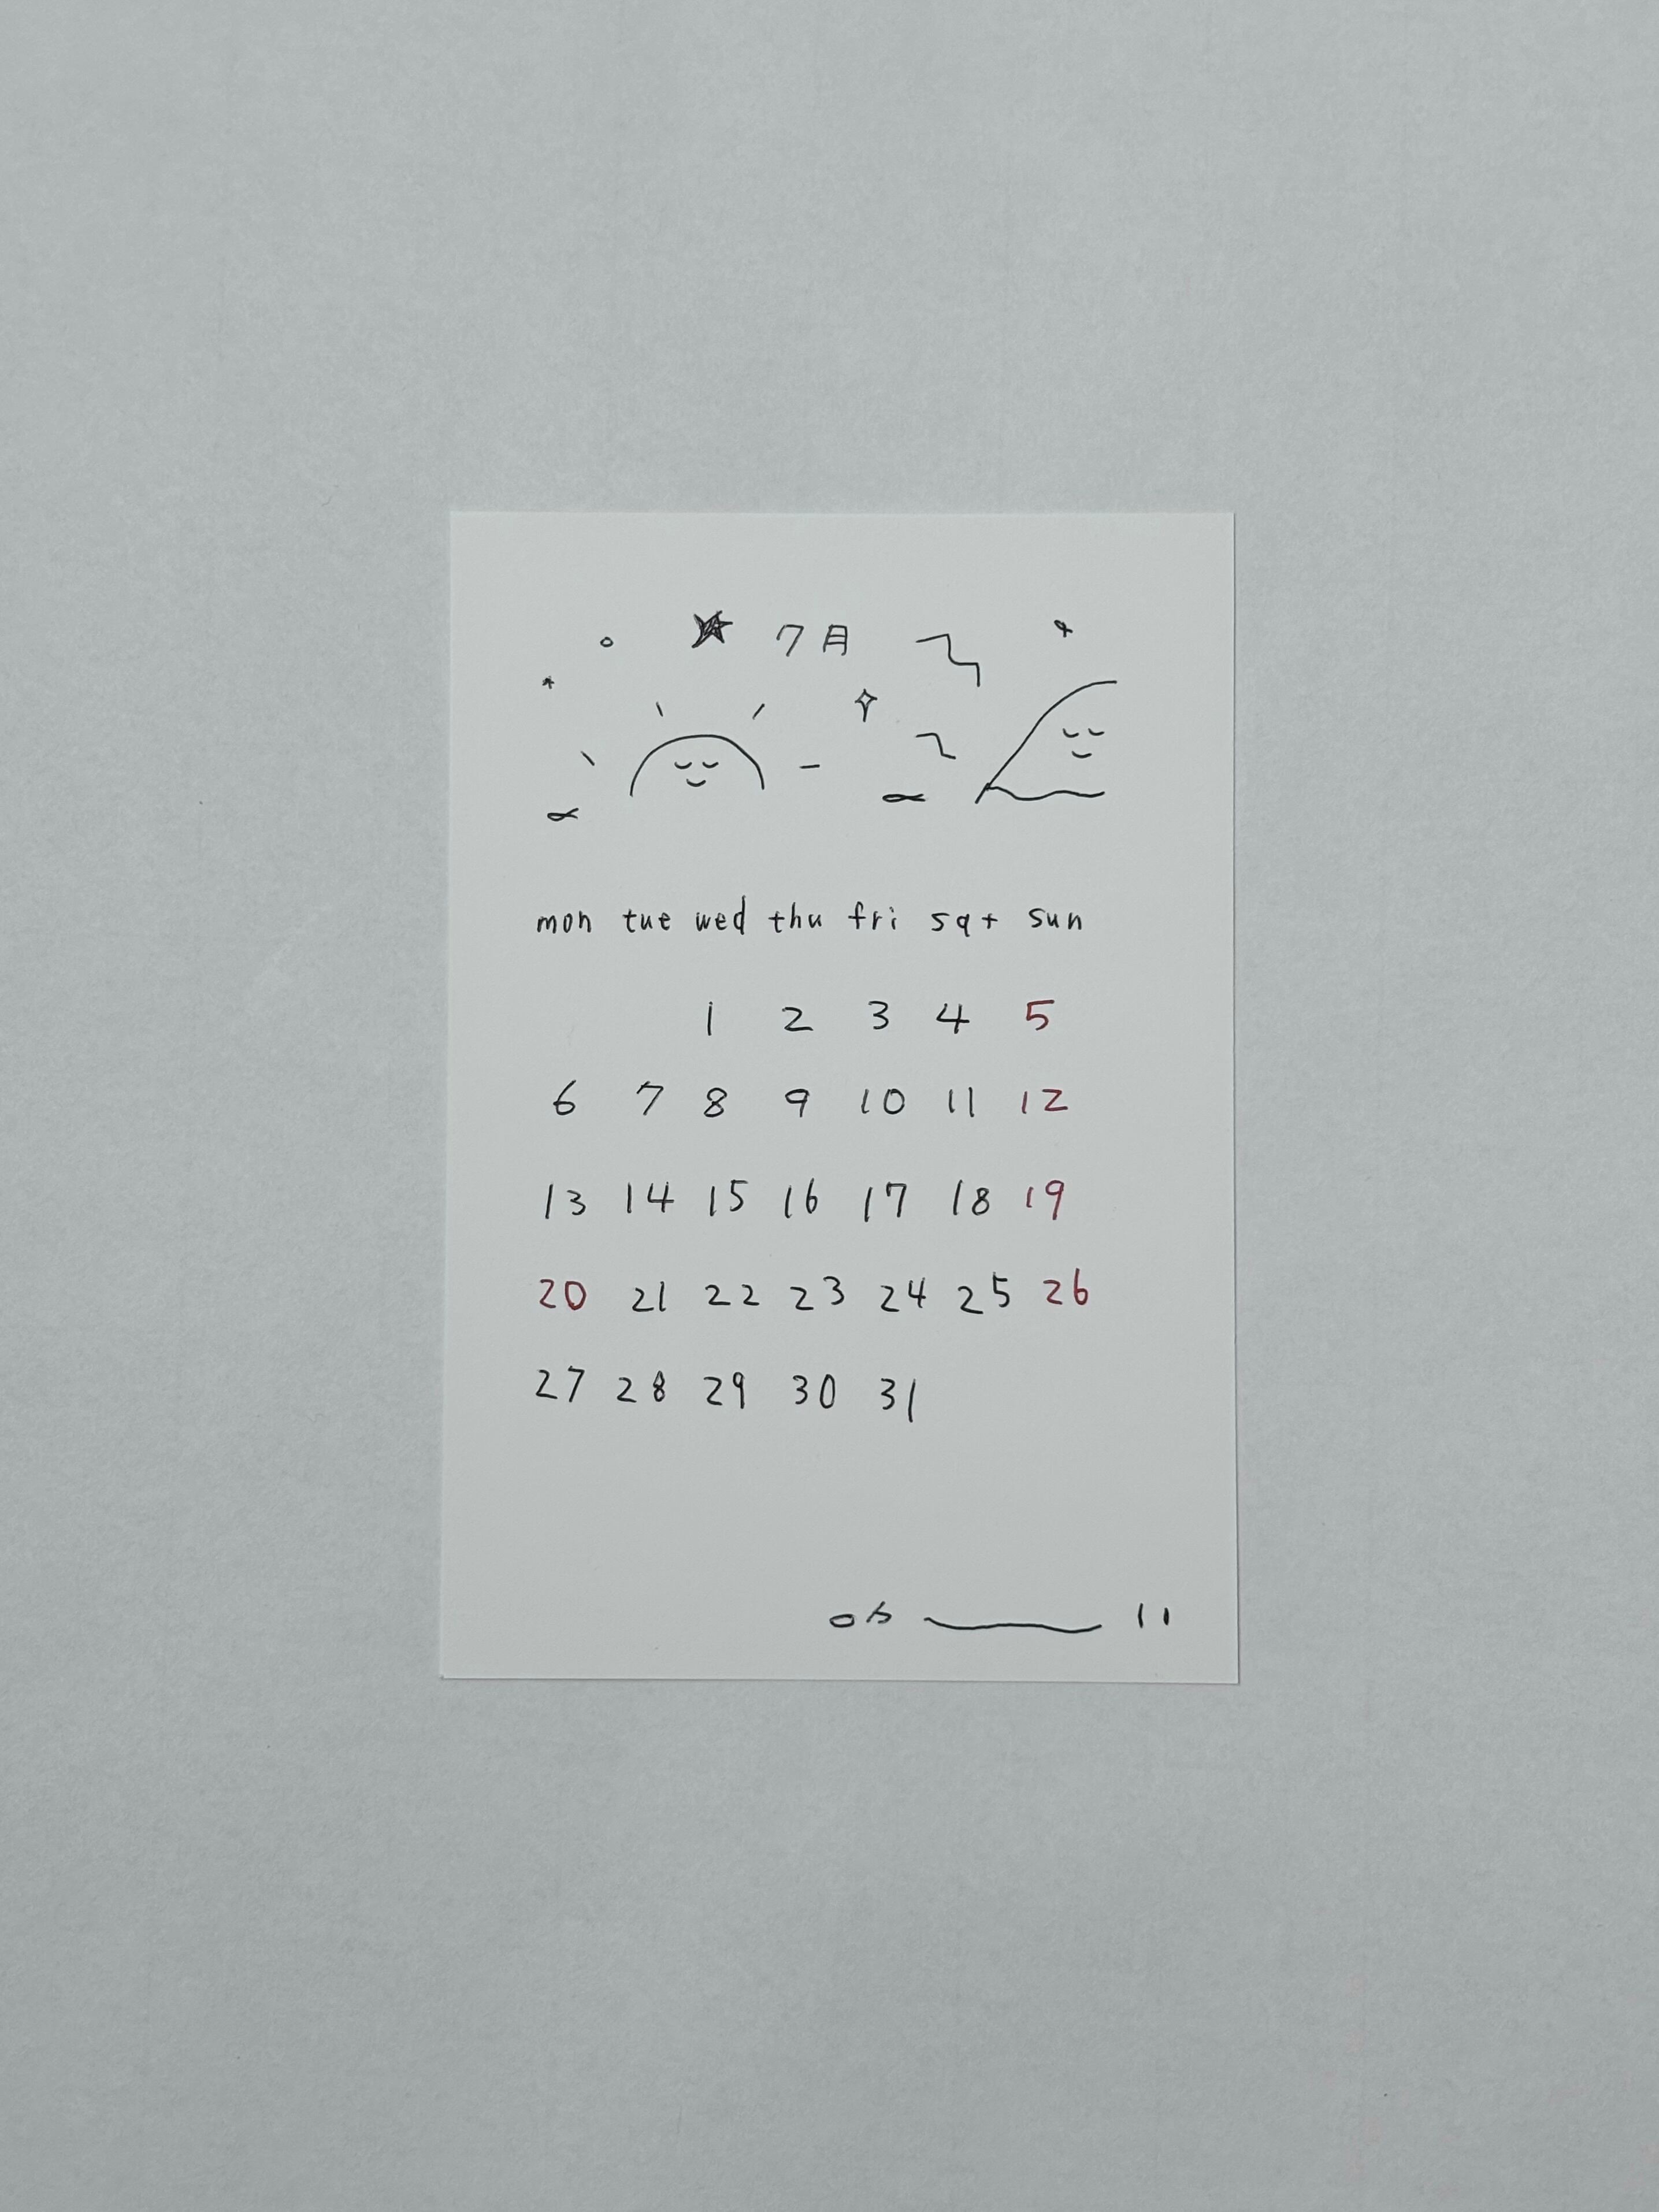 7月
mon tue wed thu fri sat sun
1 2 3 4 5
6 7 8 9 10 11 12
13 14 15 16 17 18 19
20 21 22 23 24 25 26
27 28 29 30 31